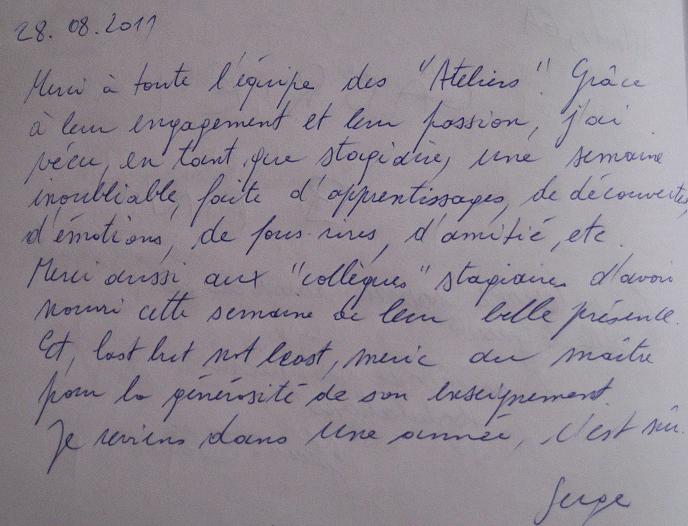 28.08.2011
Merci à toute l'équipe des "Ateliers". Grâce
à leur engagement et leur passion, j'ai
vécu, en tant que stagiaire, une semaine
inoubliable, faite d'apprentissages, de découvertes,
d'émotions, de fous-rires, d'amitié, etc.
Merci aussi aux "collègues" stagiaires d'avoir
nourri cette semaine de leur belle présence.
Et, last but not least, merci au maître
pour la générosité de son enseignement.
Je reviens dans une année, c'est sûr.
Serge